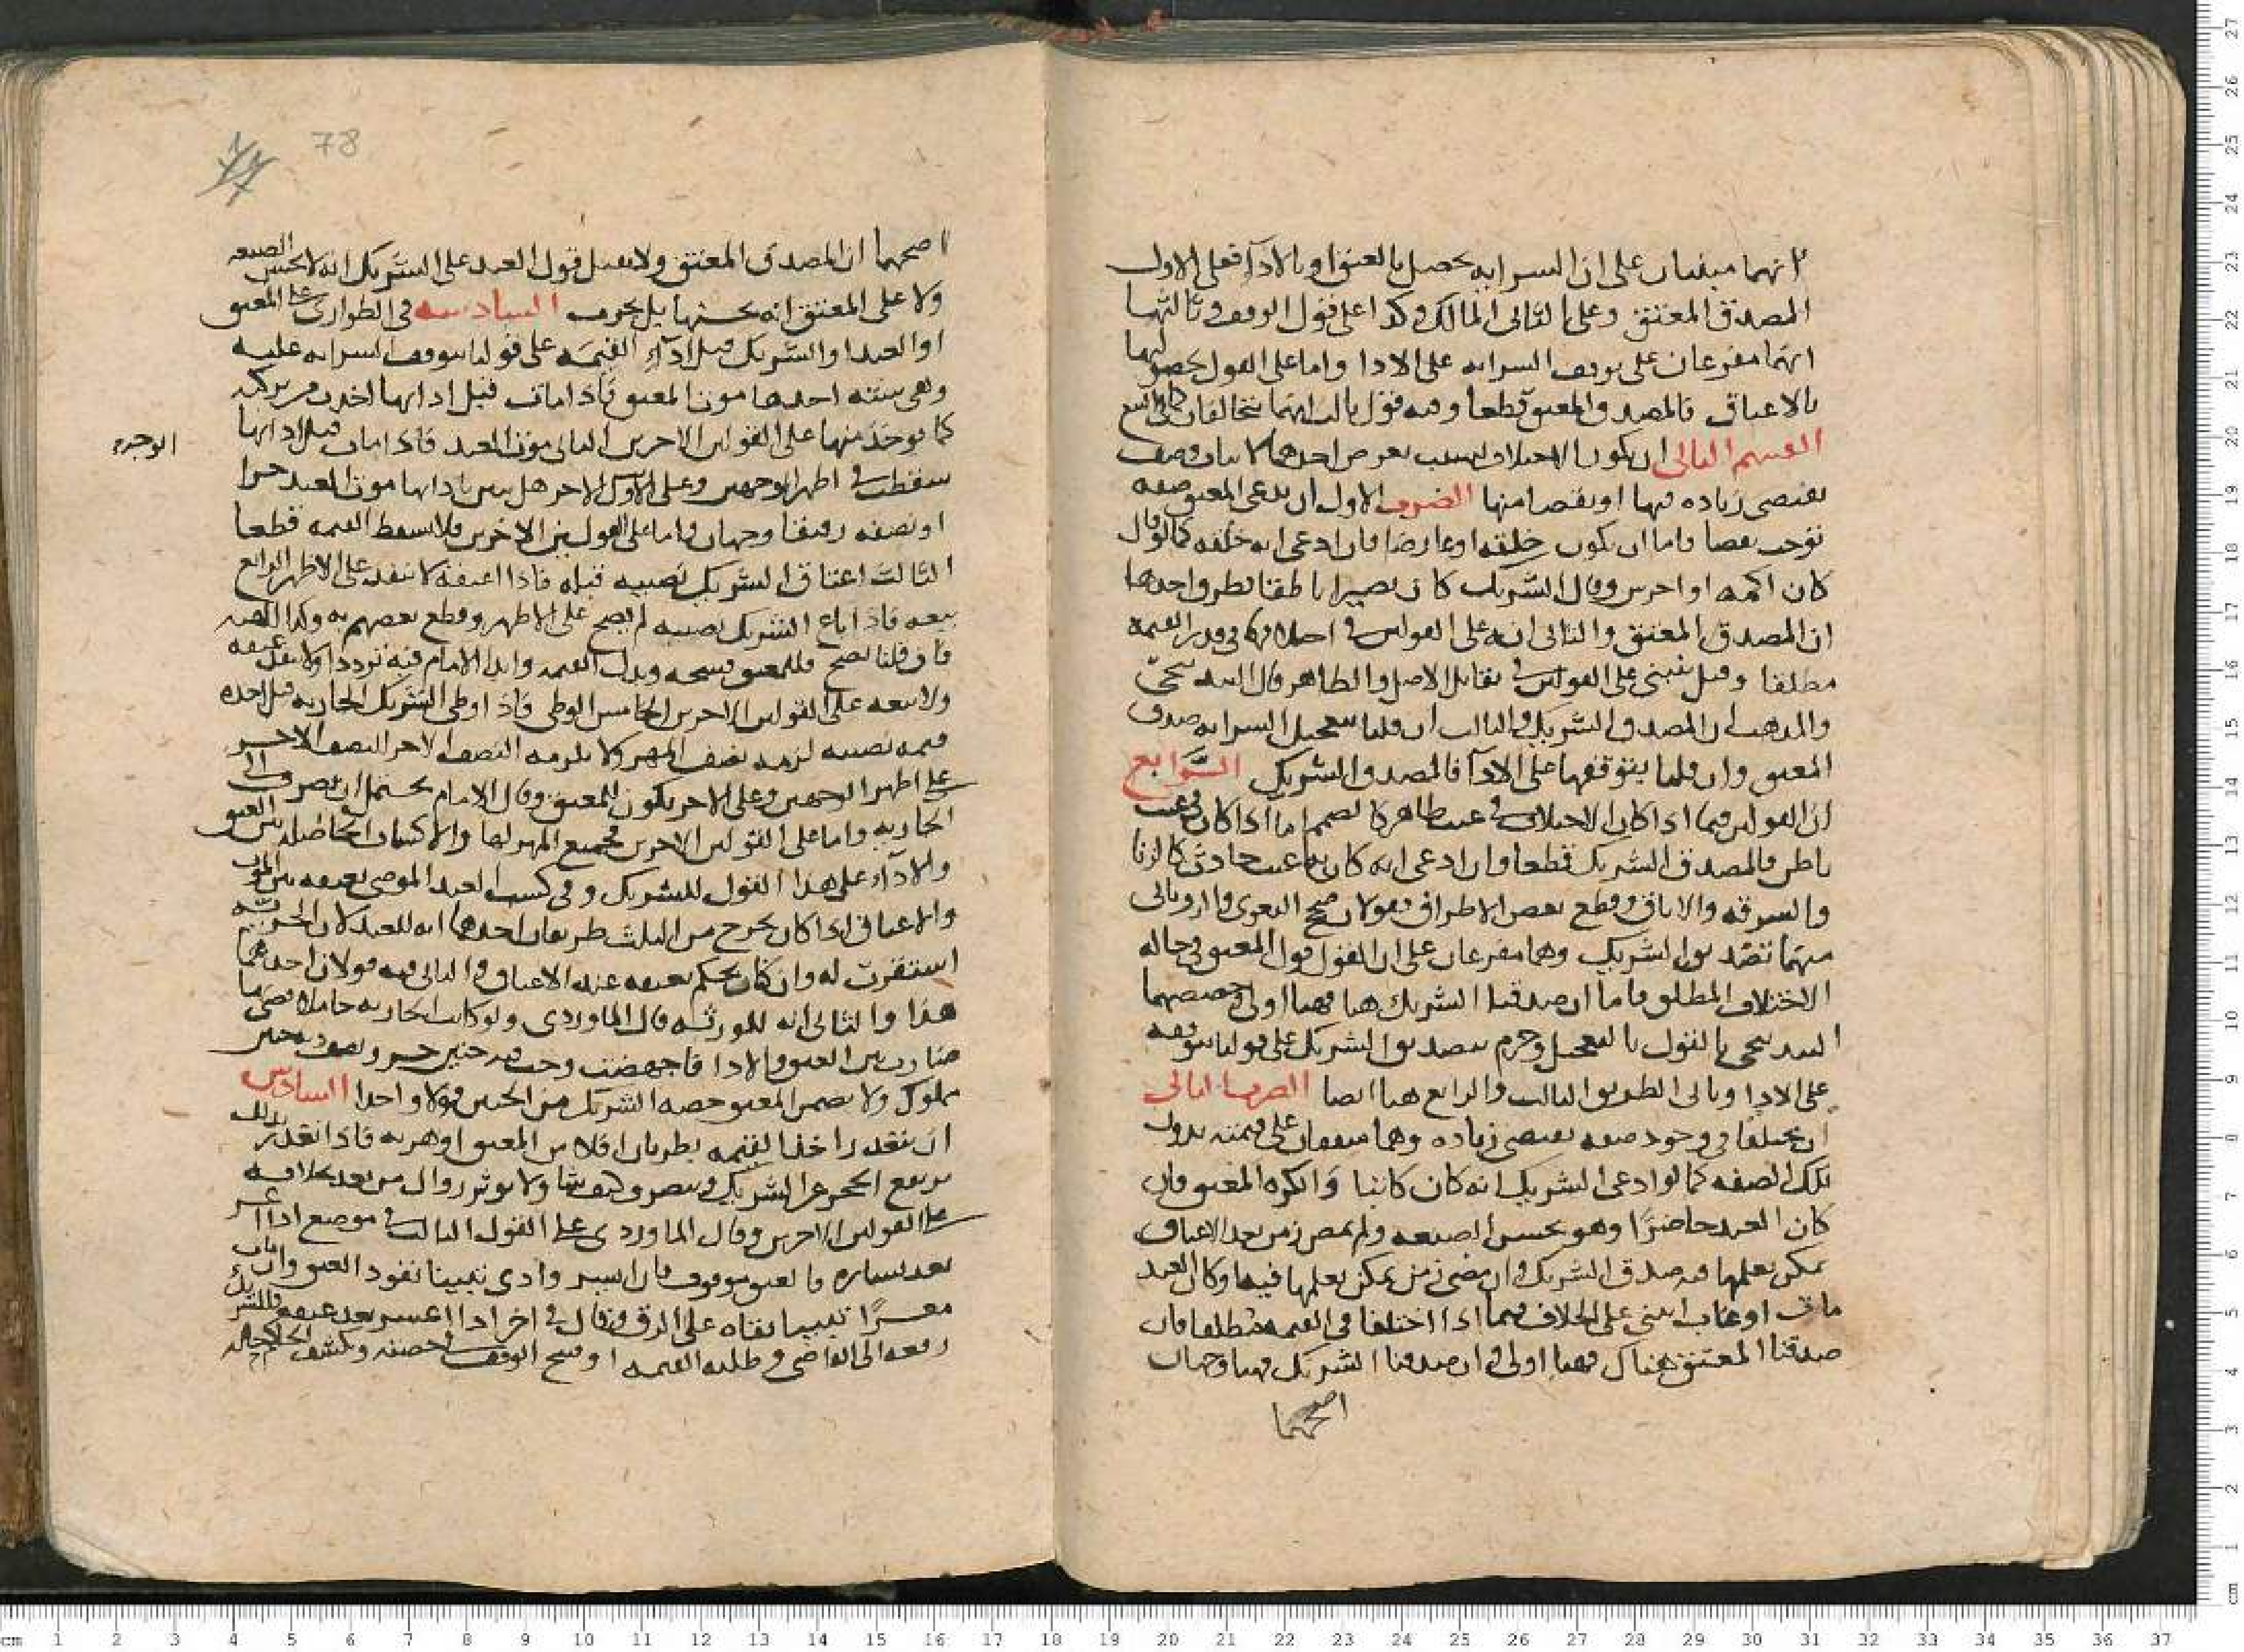 انهما مبنيان على ان السراية يحصل بالعتق او بالاداء فعلى الاول
المصدق المعتق وعلى الثاني المالك وكذا على قول الوقف وثالثها
انهما مفرعان على توقف السراية على الادا واما على القول بحصولها
بالاعتاق فالمصدق المعتق قطعا وفيه قول ثالث انهما يتحالفان
القسم الثاني ان يكون الاختلاف بسبب تعرض احدهما لاثبات وصف
يقتضي زياده فيها او نقصا منها الضرب الاول ان يدعى المعتق صفه
توجب نقصا فاما ان يكون خلقه او عارضا فان ادعى انه خلقه كما لو قال
كان اكمه او اخرس وقال الشريك كان بصيرا ناطقا فطرق احدها
ان المصدق المعتق والثاني انه على القولين في اختلافهما في قدر القيمه
مطلقا وقيل يبنى على القولين في تقابل الاصل والظاهر قال البندنيجي
والمذهب ان المصدق الشريك والثالث ان قلنا بتعجيل السراية صدق
المعتق وان قلنا بتوقفها على الادآ فالمصدق الشريك الرابع
ان القولين فيما اذا كان الاختلاف في عيب ظاهر كالصمم اما اذا كان في عيب
باطن فالمصدق الشريك قطعا وان ادعى انه كان به عيب حادث كالزنا
والسرقه والاباق وقطع بعض الاطراف فقولان صحح البغوي والروياني
منهما تصديق الشريك وهما مفرعان على ان القول قول المعتق في حاله
الاختلاف المطلق فاما ان صدقنا الشريك هنا فهنا اولى وخصصهما
البندنيجي بالقول بالتعجيل وجزم بتصديق الشريك على قولنا بتوقفه
على الادا وياتي الطريق الثالث والرابع هنا ايضا الضرب الثاني
ان يختلفا في وجود صفه تقتضي زياده وهما متفقان على قيمته بدون
تلك الصفه كما لو ادعى الشريك انه كان كاتبا وانكره المعتق فان
كان العبد حاضرا وهو يحسن الصنعه ولم يمض زمن بعد الاعتاق
يمكن تعلمها فيه صدق الشريك وان مضى زمن يمكن تعلمها فيه او كان العبد
مات او غاب ابتنى على الخلاف فيما اذا اختلفا في القيمه مطلقا فان
صدقنا المعتق هناك فهنا اولى وان صدقنا الشريك فهنا وجهان
اصحهما
78
اصحهما ان المصدق المعتق ولا يقبل قول العبد على الشريك انه لا يحسن الصنعه
ولا على المعتق انه يحسنها بل يجرب السادسه في الطوارى على المعتق
او العبد او الشريك قبل ادآء القيمه على قولنا بتوقف السرايه عليه
وهي سته احدها موت المعتق فاذا مات قبل ادائها اخذت من تركته
كما يوخذ منها على القولين الاخرين الثاني موت العبد فاذا مات قبل ادائها
الوجهين
سقطت في اظهر الوجهين وعلى الاخر هل يتبين بادائها موت العبد حرا
او نصفه رقيقا وجهان واما على القولين الاخرين فلا تسقط القيمه قطعا
الثالث اعتاق الشريك نصيبه قبله فاذا اعتقه لا ينفذ على الاظهر الرابع
بيعه فاذا باع الشريك نصيبه لم يصح على الاظهر وقطع بعضهم به وكذا الهبه
فان قلنا يصح فللمعتق فسخه وبذل القيمه وابدا الامام فيه ترددا ولا ينفذ عتقه
ولا بيعه على القولين الاخرين الخامس الوطى فاذا وطى الشريك الجاريه قبل اخذه
قيمه نصيبه لزمه نصف المهر ولا يلزمه النصف الاخر النصف الاخر
على اظهر الوجهين وعلى الاخر يكون للمعتق وقال الامام يحتمل ان يصرف الى
الجاريه واما على القولين الاخرين فجميع المهر لها والاكساب الحاصله بين العتق
والادآء على هذا القول للشريك وفي كسب العبد الموصى بعتقه بين الموت
والاعتاق اذا كان يخرج من الثلث طريقان احدهما انه للعبد لان الحريه
استقرت له وان كان يحكم بعتقه عند الاعتاق والثاني فيه قولان احدهما
هذا والثاني انه للورثه قال الماوردي ولو كانت الجاريه حاملا فصرنا
ضارب بين العتق والادا فاجهضت وجب فيه جنين حر ونصف جنين
مملوك ولا يضمن المعتق حصه الشريك من الجنين قولا واحدا السادس
ان يتعذر اخذ القيمه بطريان افلاس المعتق او هربه فاذا تعذرت بذلك
يرتفع الحجر عن الشريك ويتصرف كيف شا ولا يوثر زوال من بعد بخلافه
على القولين الاخرين وقال الماوردي على القول الثالث في موضع اذا اعسر
بعد يساره فالعتق موقوف فان ايسر وادى تبينا نفوذ العتق وان مات
معسرًا تبينا بقاه على الرق وقال في اخر اذا اعسر بعد عتقه فللشريك
رفعه الى القاضي وطلبه القيمه او فسخ الوقف في حصته ويكشف الحاكم حاله